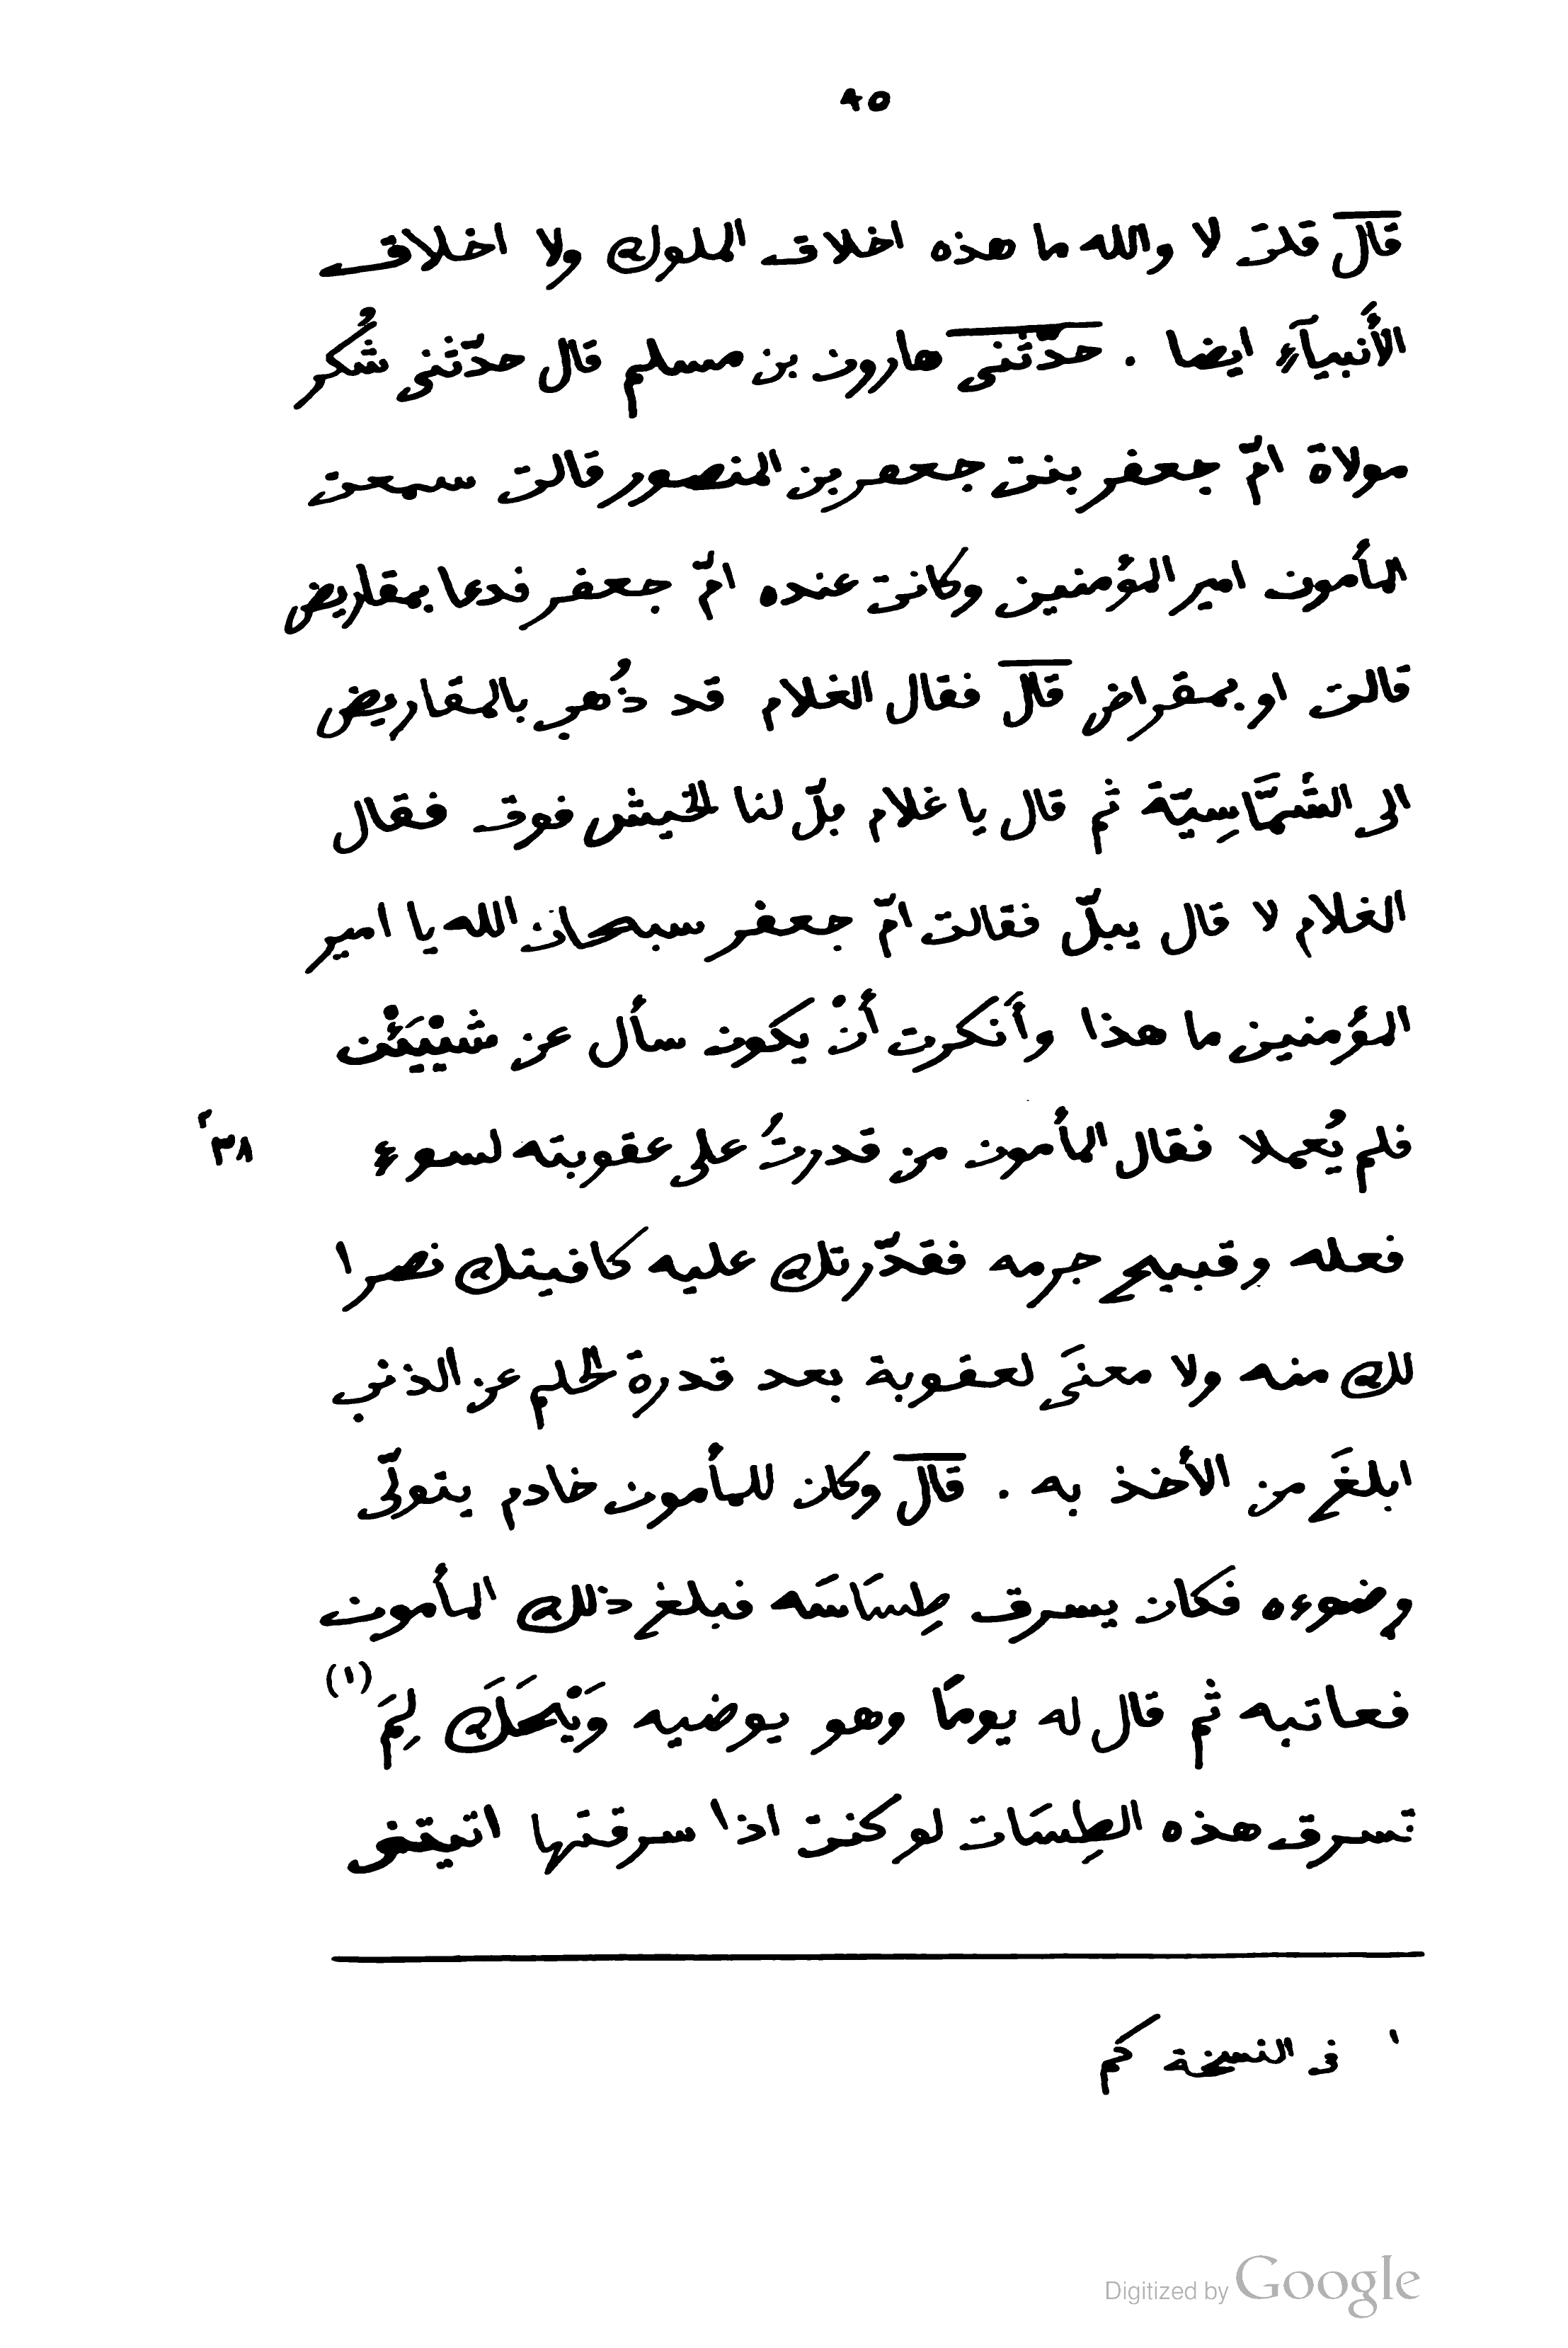 ٩٥
قال قلت لا والله ما هذه اخلاق الملوك ولا اخلاق
الأَنبيآء ايضا . حدّثنى هارون بن مسلم قال حدّثنى شُكر
مولاة امّ جعفر بنت جعفر بن المنصور قالت سمعت
المأمون امير المؤمنين وكانت عنده امّ جعفر فدعا بمقاريض
قالت او بمقراض قال فقال الغلام قد ذُهب بالمقاريض
الى الشَمَّاسِيّة ثم قال يا غلام بلّ لنا الخيش فوق فقال
الغلام لا قال يبلّ فقالت امّ جعفر سبحان الله يا امير
المؤمنين ما هذا وأَنكرت أَنْ يكون سأل عن شيْئَيْن
فلم يُعملا فقال المأمون من قدرتُ على عقوبته لسوء
٣٨
فعله وقبيح جرمه فقدّرتك عليه كافيتك نصرا
لك منه ولا معنَى لعقوبة بعد قدرة الحلم عن الذنب
ابلغَ من الأخذ به . قال وكان للمأمون خادم يتولّى
وضوءه فكان يسرق طِسَاسَه فبلغ ذلك المأمون
فعاتبه ثم قال له يومًا وهو يوضيه وَيْحَكَ لِمَ (١)
تسرق هذه الطِسَات لو كنت اذا سرقتها اتيتنى
١ فى النسخة كم
Digitized by Google